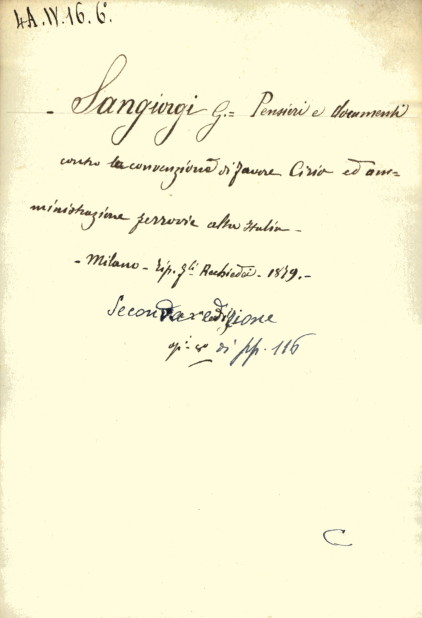 4A.IV.16.6º
- Sangiorgi G.= Pensieri e documenti
contro la convenzione di favore Cirio ed am=
ministrazione ferrovie alta Italia -
- Milano - Tip. f.lli Rechiedei - 1879.-
Seconda edizione
di pp. 116
C